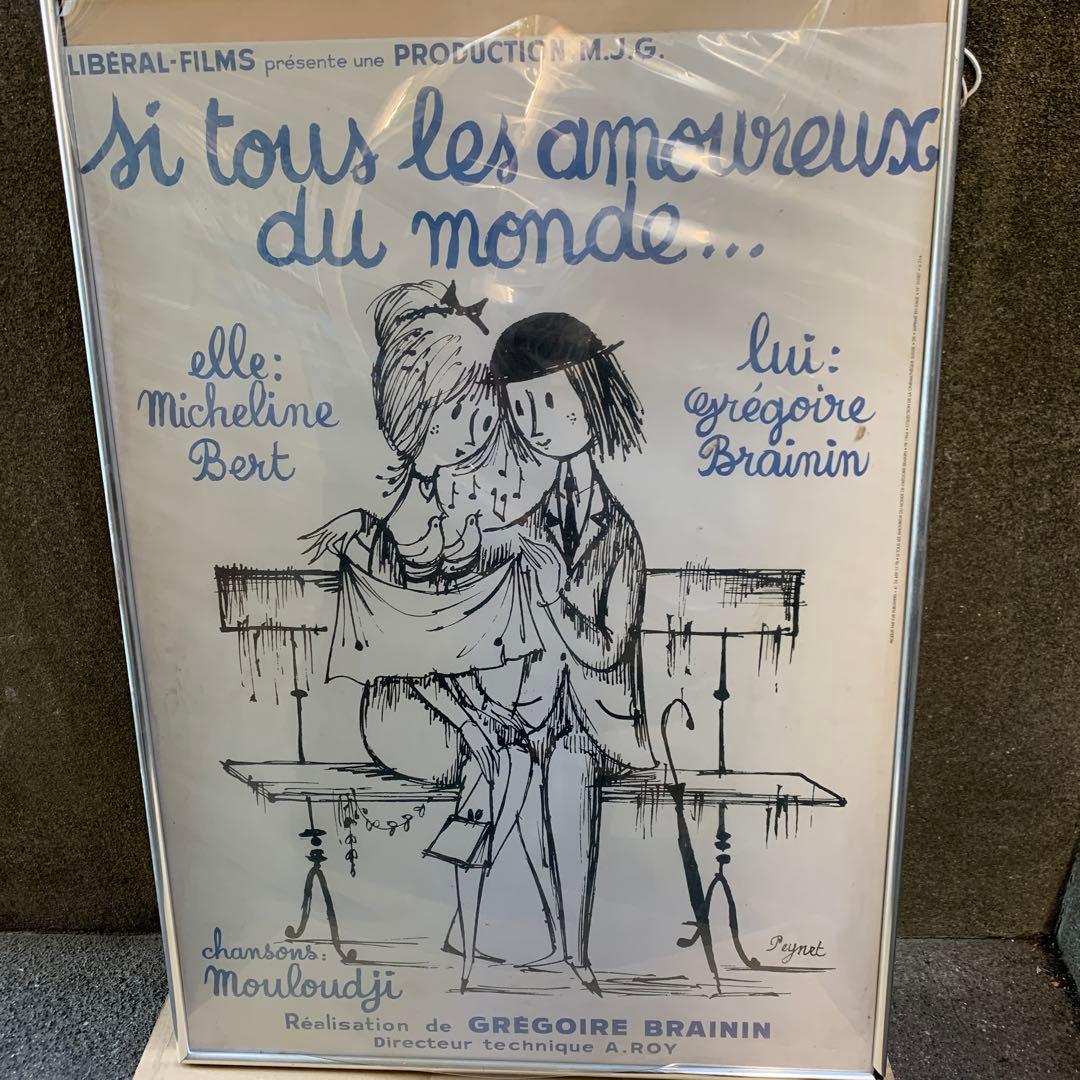 LIBÉRAL-FILMS présente une PRODUCTION M.J.G.
si tous les amoureux
du monde...
elle:
Micheline
Bert
lui:
Grégoire
Brainin
Peynet
chansons:
Mouloudji
Réalisation de GRÉGOIRE BRAININ
Directeur technique A.ROY